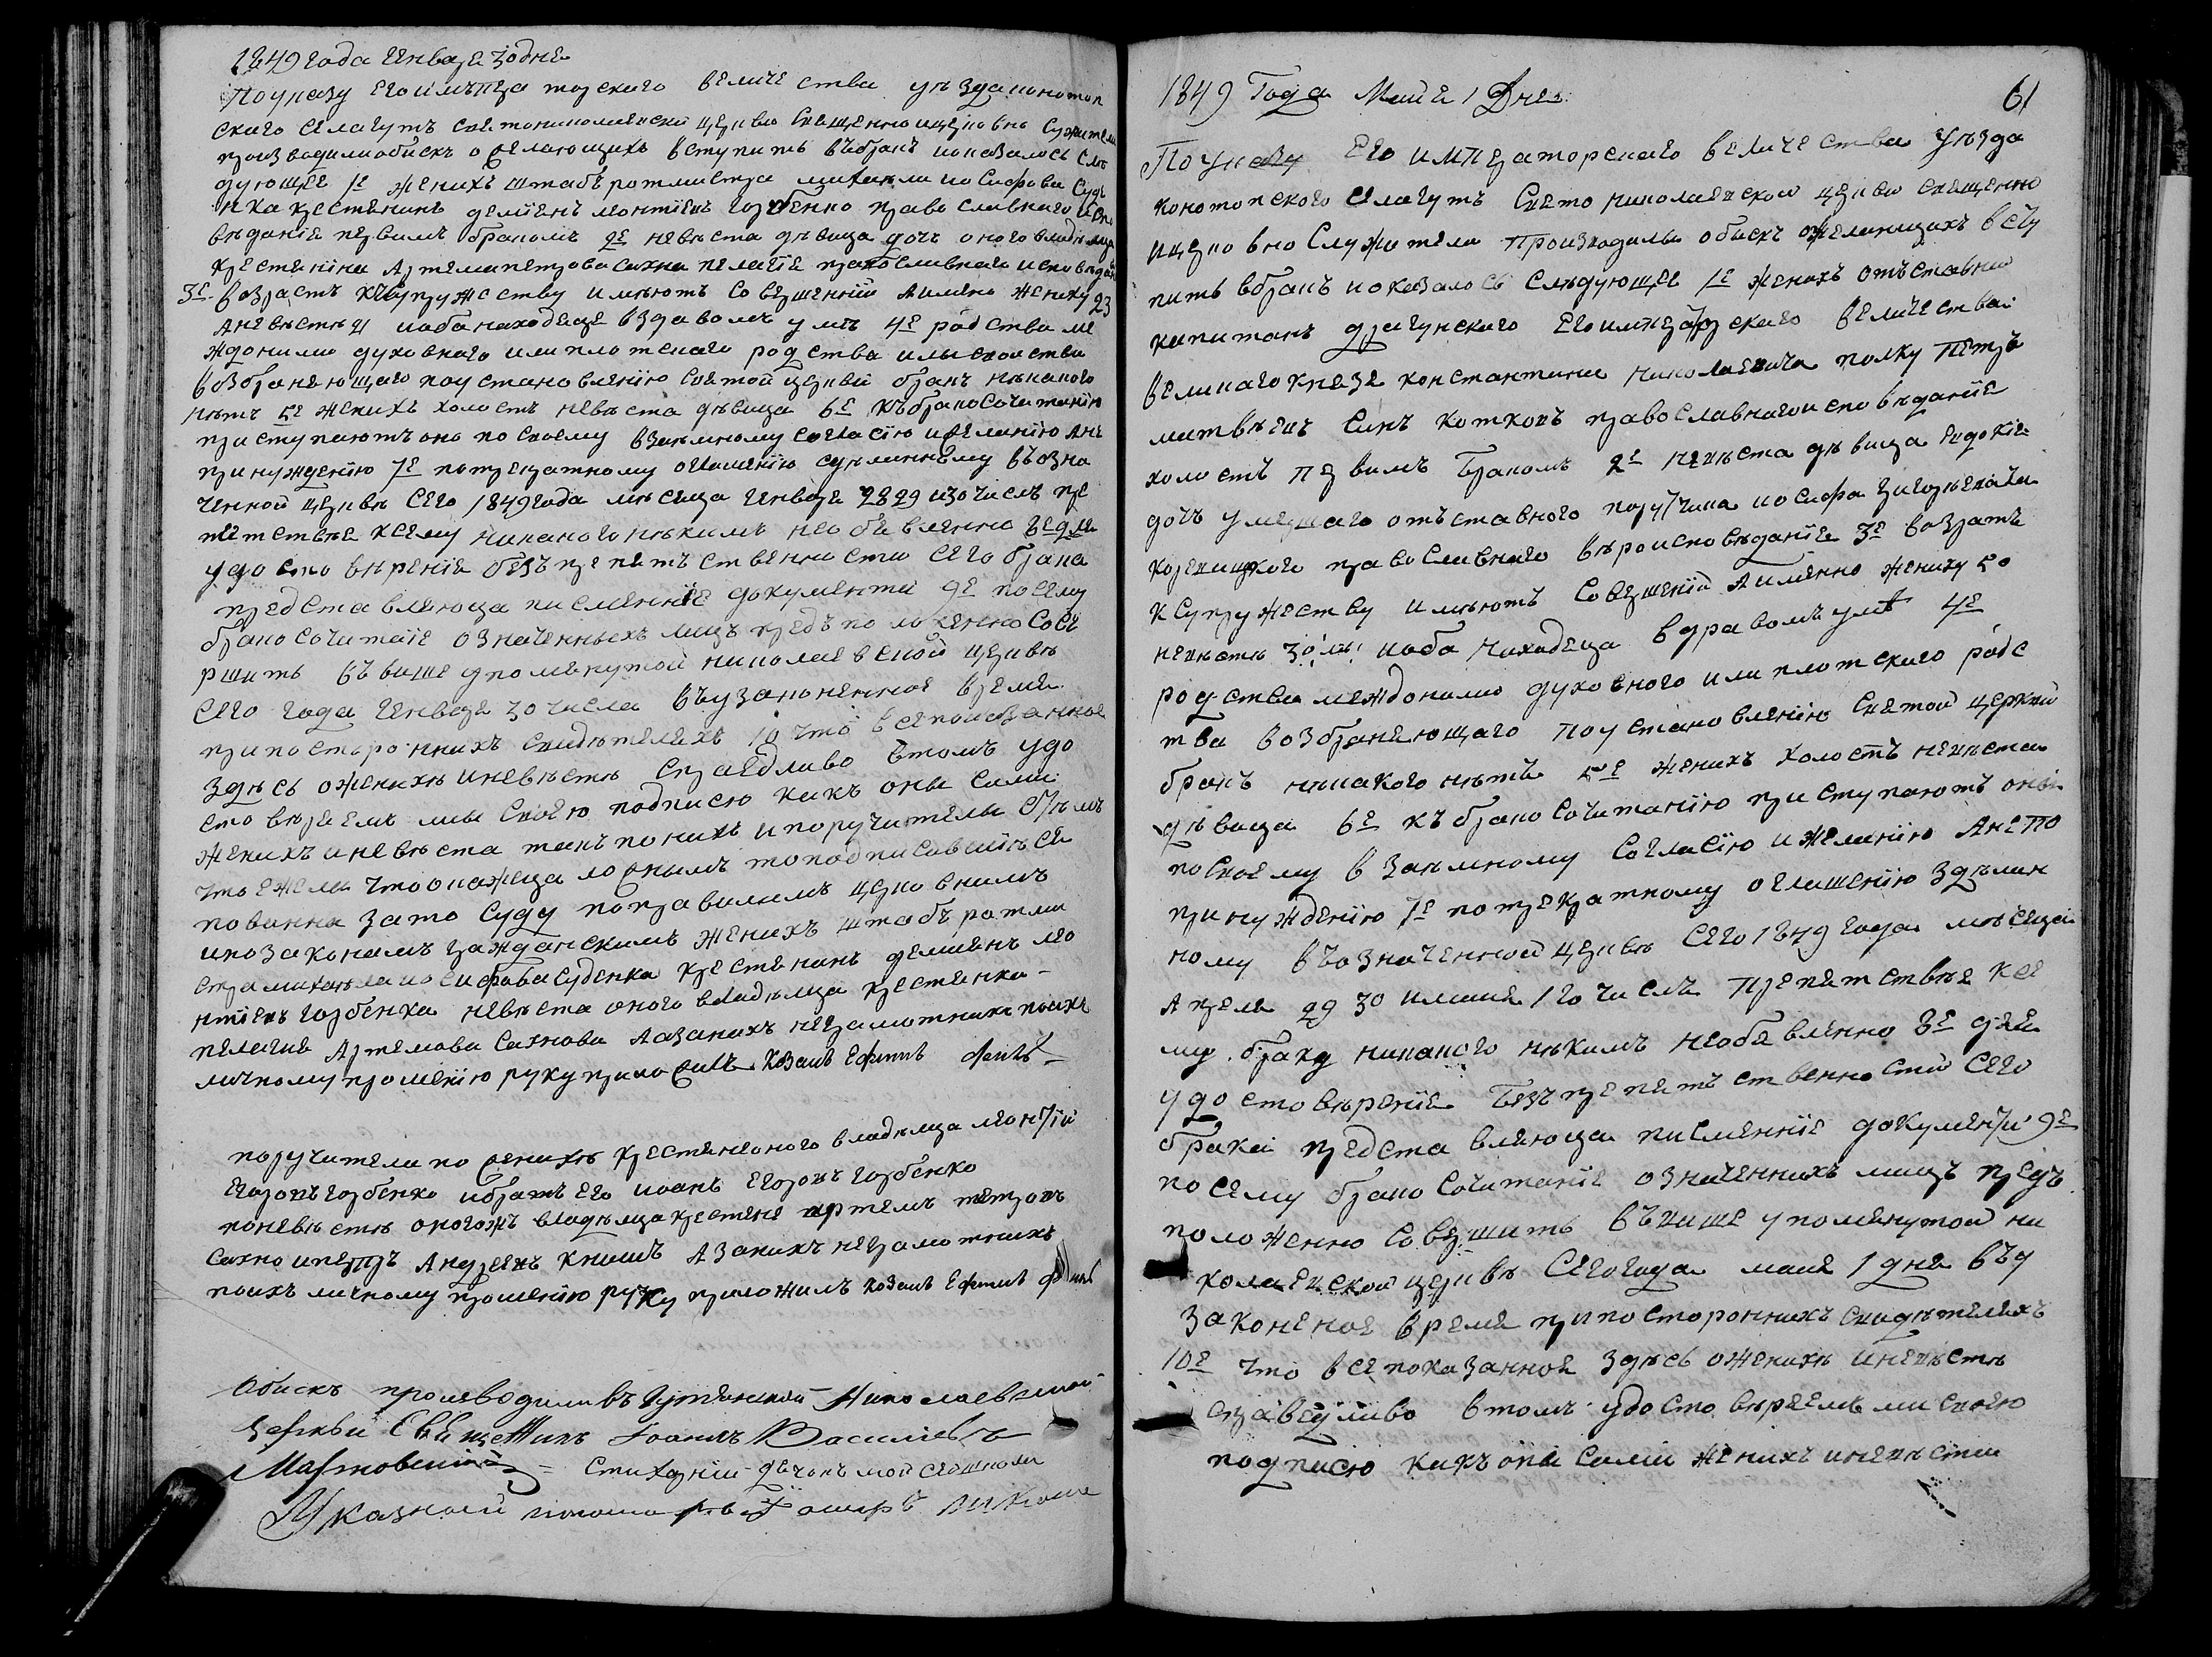 1849 года генваря 30 дня
По указу его императорского величества уезда конотоп
ского села гутъ свято николаевской церкви священно и церковно служители
производили обискъ о желающихъ вступить въ бракъ и оказалось слѣ
дующее 1е женихъ штабъ ротмистра михаила иосифова Суде
нка крестянинъ демиянъ леонтиевъ горбенко православного испо
вѣданiя первимъ бракомъ 2е невѣста дѣвица дочь оного владѣлца
крестянина Артема петрова сахна пелагiя православнаго исповѣдан
3е возрастъ къ супружеству имѣютъ совершеннiй а имено жениху 23
а невѣстѣ 21 и оба находяця в здравомъ умѣ 4е родства ме
ждо ними духовнаго или плотскаго родства и свойства
возбраняющаго по установленiю святой церкви бракъ никакого
нѣтъ 5е женихъ холостъ невѣста дѣвица 6е къ бракосочитанiю
приступаютъ оно по своему взаимному согласiю и желанiю а не
принужденiю 7е по трекратному оглашенiю сдѣланному въ озна
ченной церквѣ сего 1849 года мѣсяца генваря 28 29 и 30 числъ пре
пятствiя к сему никакого никимъ не обявленно 8е для
удостовѣренiя безъ препятственности сего брака
представляюца писменнiе документи 9е по сему
бракосочитанiе означенныхъ лицъ предположенно сове
ршить въ више упомянутой николаевской церквѣ
сего года генваря 30 числа въ узаконенное время
при постороннихъ свидѣтеляхъ 10 что все показанное
здѣсь о женихѣ и невѣстѣ справедливо в томъ удо
стовѣряемъ мы своею подписю какъ оны сами
женихъ и невѣста такъ по нихъ и поручители с тѣмъ
что ежели что окажеца ложнымъ то подписавшiися
повинни за то суду по правиламъ церковнимъ
и по законамъ гражданскимъ женихъ штабъ ротми
стра михаила иосифова Суденка крестянинъ демиянъ лео
нтiевъ горбенко невѣста оного владѣлца крестянка
пелагия Артемова Сахнова а за нихъ неграмотнихъ по ихъ
личному прошенiю руку приложилъ козакъ Ефимъ

поручители по женихѣ крестяне оного владѣлца леонтiй
Егоровъ горбенко и братъ его иоанъ Егоровъ горбенко
по невѣстѣ оного жъ владѣлца крестяне артемъ петровъ
сахно и петръ Андреевъ книшъ а за нихъ неграмотнихъ
по ихъ личному прошенiю руку приложилъ козакъ Ефимъ

Обискъ производили въ Гутянской Николаевской
церкви Священникъ Иоаннъ Василiевъ
Мартновский = Стихарнiй дячокъ
Указной пономарь

1849 Года Маия 1 Дня 61
По указу Его императорскаго величества уѣзда
конотопского села гутъ Свято николаевской церкви священно
и церковно служители производили обискъ о желающихъ всту
пить в бракъ и оказалось слѣдующее 1е женихъ отъставной
капитанъ драгунского Его императорскаго величества
великаго князя константина николаевича полку петръ
матвѣевъ синъ котковъ православнаго исповѣданiя
холостъ первимъ бракомъ 2е невѣста дѣвица Евдокiя
дочь умершаго отъставного поручика иосифа григорьевича
корсицкого православнаго вѣроисповѣданiя 3е возрастъ
к супружеству имѣютъ совершенiй а именно жениху 50
невѣстѣ 30 лѣ: и оба находяца в здравомъ умѣ 4е
родства междо ними духовного или плотскаго родс
тва возбраняющаго по установленiю святой церкви
бракъ никакого нѣтъ 5е женихъ холостъ невѣста
дѣвица 6е къ бракосочитанiю приступаютъ они
по своему взаимному согласiю и желанiю а не по
принужденiю 7е по трекратному оглашенiю здѣлан
ному въ означенной церквѣ сего 1849 года мѣсяца
апреля 29 30 и маия 1го числъ препятствiя к се
му браку никакого никимъ не обявленно 8е для
удостовѣренiя безъ препятъственности сего
брака представляюца писменнiе документи 9е
по сему бракосочитанiе означеннихъ лицъ предъ
положенно совершить въ више упомянутой ни
колаевской церквѣ сего года маия 1 дня въ у
законеное время при постороннихъ свидѣтеляхъ
10е что все показанное здѣсь о женихѣ и невѣстѣ
справедливо в томъ удостовѣряемъ ми своею
подписю какъ они сами женихъ и невѣста